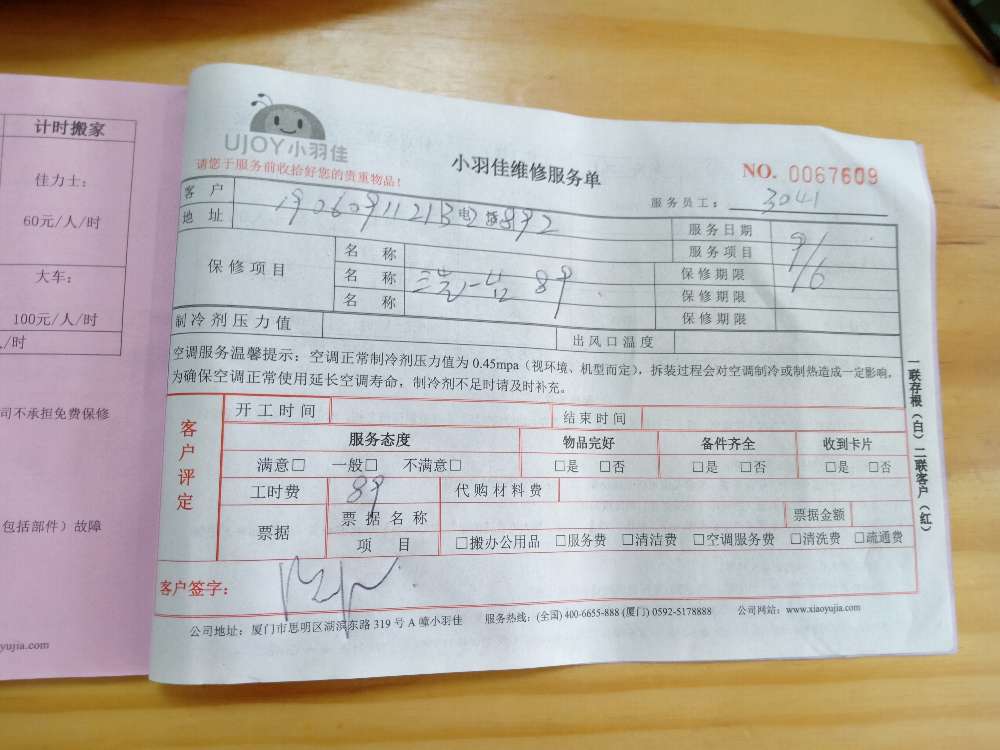 计时搬家
佳力士：
60元/人/时
大车：
100元/人/时
/时
司不承担免费保修
包括部件）故障
yujia.com
UJOY小羽佳
请您于服务前收拾好您的贵重物品！
小羽佳维修服务单
NO. 0067609
服务员工： 3041
客 户
地 址
服务日期 9/6
服务项目
保修项目
名 称
保修期限
名 称 89
保修期限
名 称
保修期限
制冷剂压力值
出风口温度
空调服务温馨提示：空调正常制冷剂压力值为 0.45mpa（视环境、机型而定），拆装过程会对空调制冷或制热造成一定影响，
为确保空调正常使用延长空调寿命，制冷剂不足时请及时补充。
客户评定
开工时间
结束时间
服务态度 物品完好 备件齐全 收到卡片
满意□ 一般□ 不满意□ □是 □否 □是 □否 □是 □否
工时费 89 代购材料费
票据
票据名称 票据金额
项 目 □搬办公用品 □服务费 □清洁费 □空调服务费 □清洗费 □疏通费
客户签字：
公司地址：厦门市思明区湖滨东路 319 号 A 幢小羽佳 服务热线：(全国) 400-6655-888 (厦门) 0592-5178888 公司网站：www.xiaoyujia.com
一联存根（白）二联客户（红）